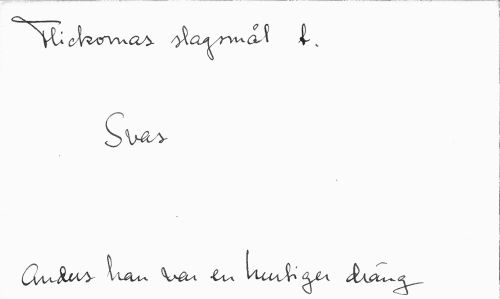 Flickornas slagsmål t.
Svas
Anders han var en hurtiger dräng